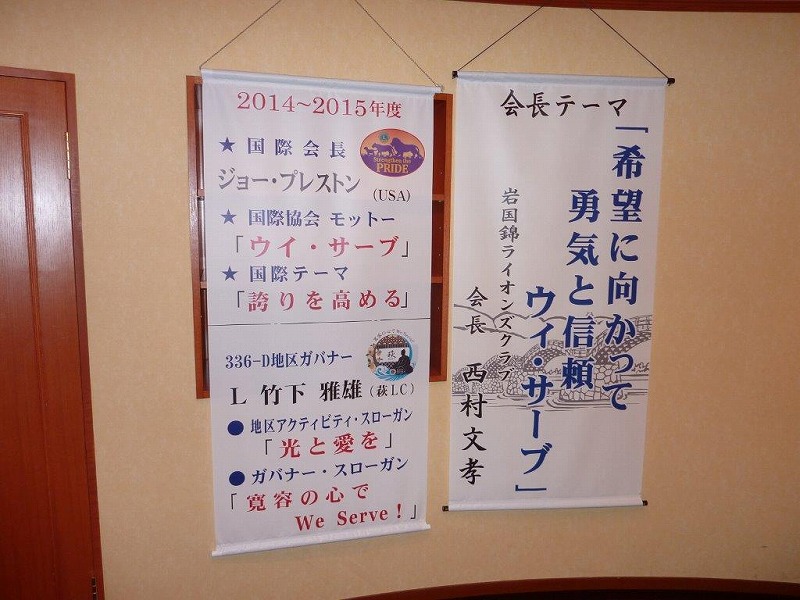 2014~2015年度
★ 国際会長
Strengthen the
PRIDE
ジョー・プレストン
(USA)
★ 国際協会 モットー
「ウイ・サーブ」
★ 国際テーマ
「誇りを高める」
336-D地区ガバナー
萩
L 竹下 雅雄 (萩LC)
● 地区アクティビティ・スローガン
「光と愛を」
● ガバナー・スローガン
「寛容の心で
We Serve!」
会長テーマ
「希望に向かって
勇気と信頼
ウィ・サーブ」
岩国錦ライオンズクラブ
会長 西村文孝